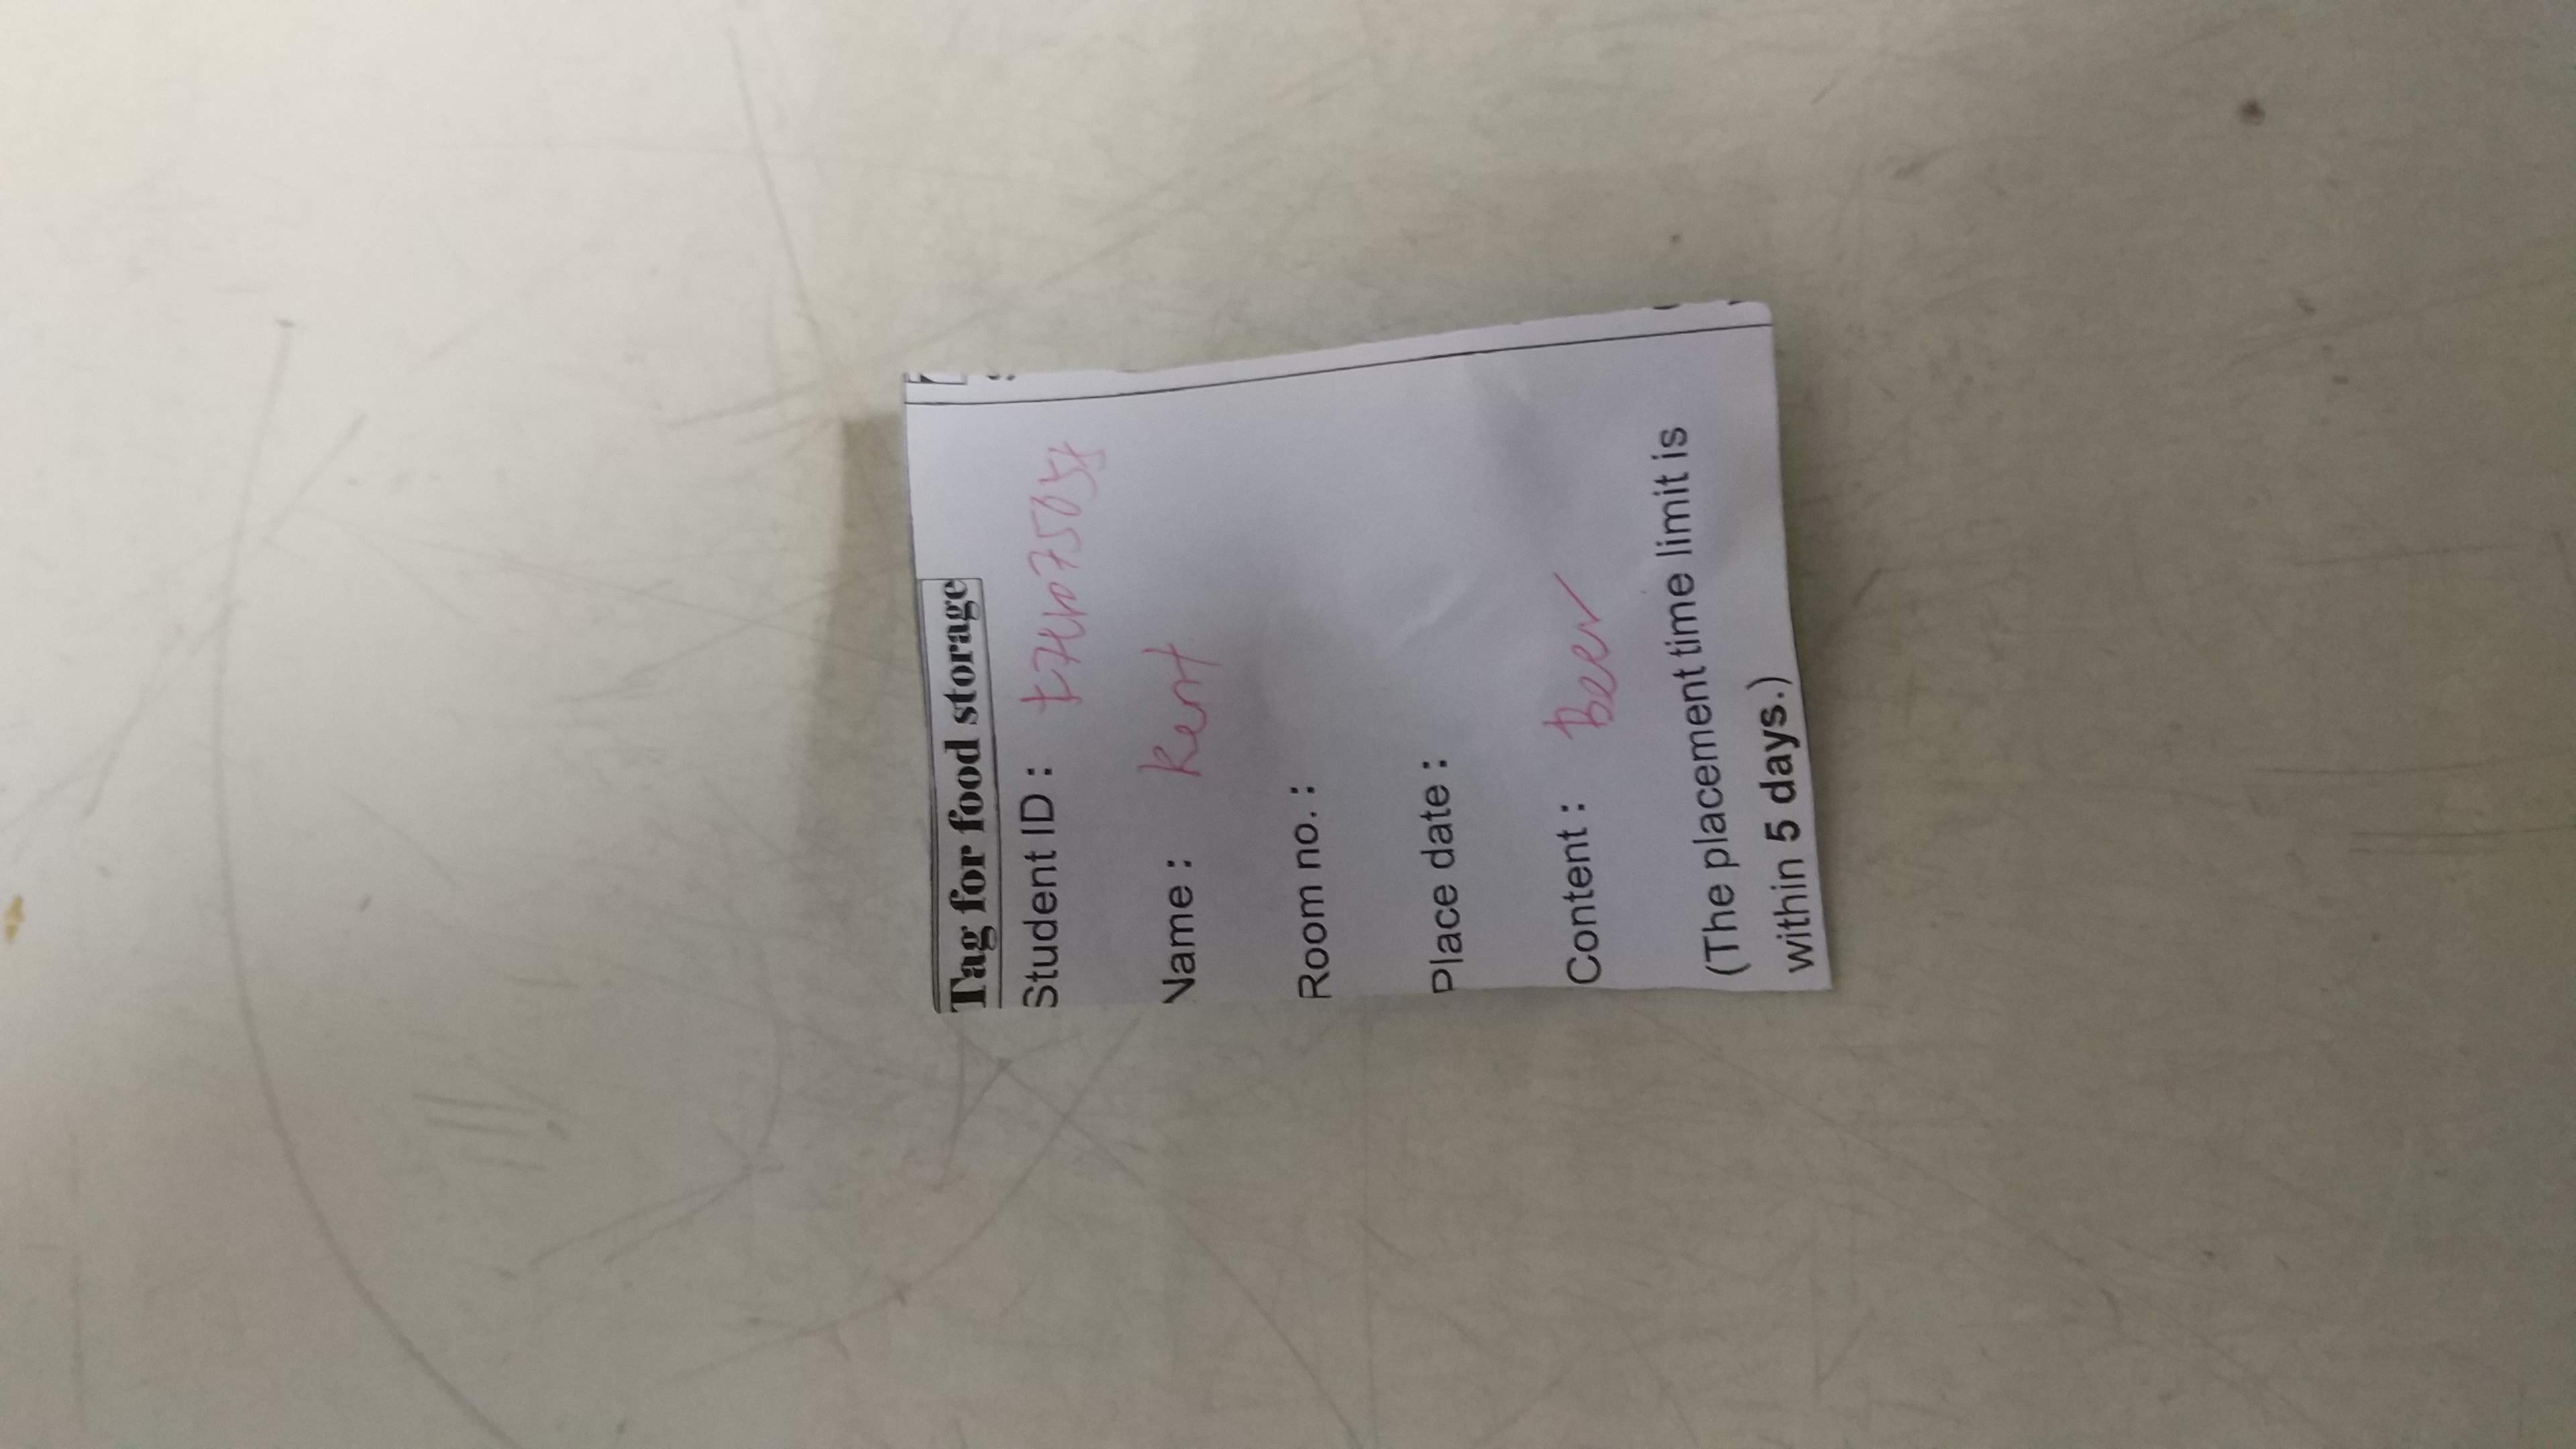 Tag for food storage
Student ID :
Name : Kent
Room no. :
Place date :
Content : Beer
(The placement time limit is
within 5 days.)